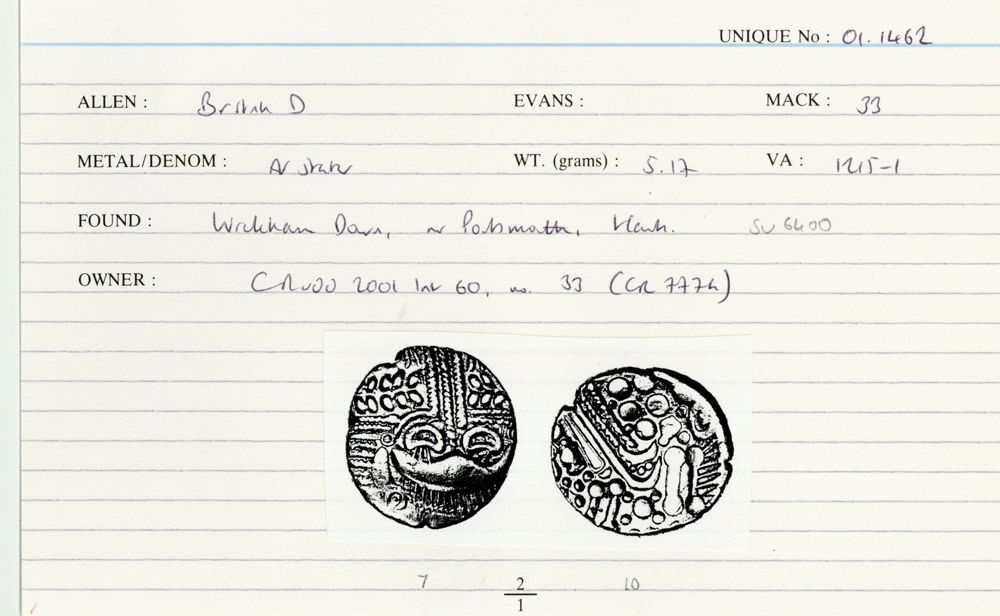 UNIQUE No : 01.1462
ALLEN : British D EVANS : MACK : 33
METAL/DENOM : AV stater WT. (grams) : 5.17 VA : 1215-1
FOUND : Wickham Down, nr Portsmouth, Hants. SU 6400
OWNER : 2001 list 60, no. 33 (CR 777
7 2 10
1